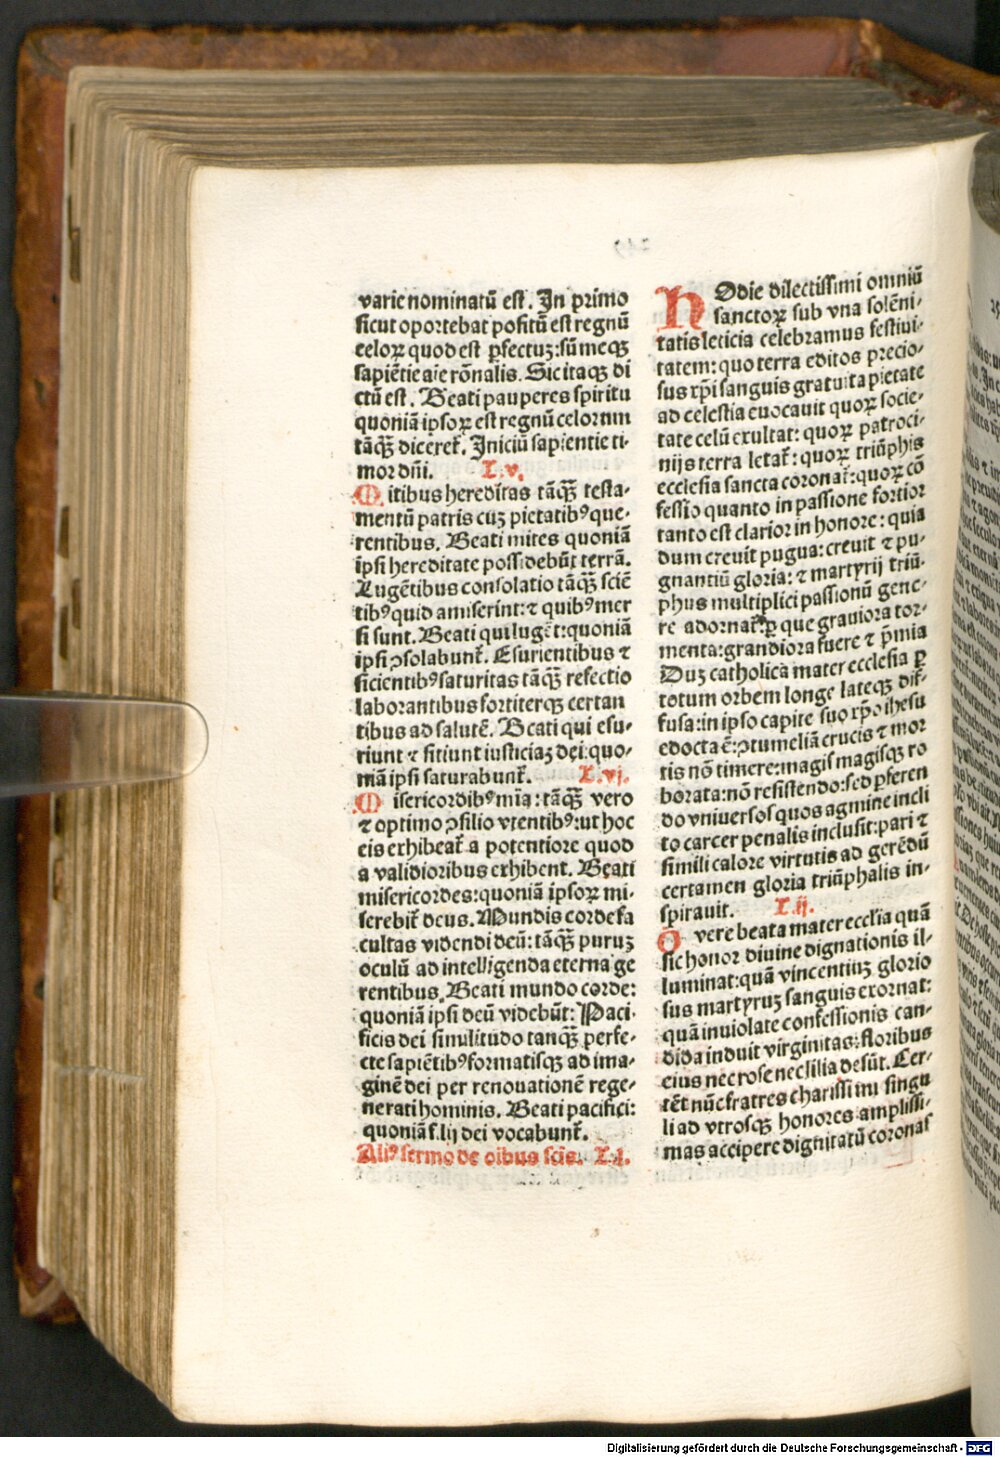 varie nominatū est. In primo
sicut oportebat positū est regnū
celoꝝ quod est ꝑfectuꝫ: sūmeqꝫ
sapiētie aīe rōnalis. Sic itaqꝫ di
ctū est. Beati pauperes spiritu
quoniā ipsoꝝ est regnū celorum
tāqꝫ̄ diceret᷑. Iniciū sapientie ti-
mor dn̄i. L.v.
Mitibus hereditas tāqꝫ̄ testa-
mentū patris cuꝫ pietatibꝰ que-
rentibus. Beati mites quoniā
ipsi hereditate possidebūt terrā.
Lugētibus consolatio tāqꝫ̄ sciē
tibꝰ quid amiserint: ⁊ quibꝰ mer
si sunt. Beati qui lugēt: quoniā
ipsi ꝯsolabunt᷑. Esurientibus ⁊
sicientibꝰ saturitas tāqꝫ̄ refectio
laborantibus fortiterqꝫ certan
tibus ad salutē. Beati qui esu-
riunt ⁊ sitiunt iusticiaꝫ dei: quo-
niā ipsi saturabunt᷑. L.vj.
Misericordibꝰ mīa: tāqꝫ̄ vero
⁊ optimo ꝯsilio vtentibꝰ: ut hoc
eis exhibeat᷑ a potentiore quod
a validioribus exhibent. Beati
misericordes: quoniā ipsoꝝ mi-
serebit᷑ deus. Mundis corde fa
cultas videndi deū: tāqꝫ̄ puruꝫ
oculū ad intelligenda eterna ge
rentibus. Beati mundo corde:
quoniā ipsi deū videbūt: Paci-
ficis dei similitudo tanqꝫ̄ perfe-
cte sapiētibꝰ formatisqꝫ ad ima-
ginē dei per renouationē rege-
nerati hominis. Beati pacifici:
quoniā f.lij dei vocabunt᷑.
Aliꝰ sermo de oībus scīs. L.j.
HOdie dilectissimi omniū
sanctoꝝ sub vna solēni-
tatis leticia celebramus festiui-
tatem: quo terra editos precio-
sus xp̄i sanguis gratuita pietate
ad celestia euocauit quoꝝ socie-
tate celū exultat: quoꝝ patroci-
nijs terra letat᷑: quoꝝ triūphis
ecclesia sancta coronat᷑: quoꝝ cō
fessio quanto in passione fortior
tanto est clarior in honore: quia
dum creuit pugna: creuit ⁊ pu-
gnantiū gloria: ⁊ martyrij triū-
phus multiplici passionū gene-
re adornat᷑ ꝑ que grauiora tor-
menta: grandiora fuere ⁊ p̄mia
Duꝫ catholica mater ecclesia ꝑ
totum orbem longe lateqꝫ dif-
fusa: in ipso capite suo xp̄o ihesu
edocta ē: ꝯtumeliā crucis ⁊ mor
tis nō timere: magis magisqꝫ ro
borata: nō resistendo: sed ꝑferen
do vniuersos quos agmine incli
to carcer penalis inclusit: pari ⁊
simili calore virtutis ad gerēdū
certamen gloria triūphalis in-
spirauit. L.ij.
O vere beata mater ecclīa quā
sic honor diuine dignationis il-
luminat: quā vincentiuꝫ glorio
sus martyruꝫ sanguis exornat:
quā inuiolate confessionis can-
dida induit virginitas: floribus
eius nec rose nec lilia desūt. Cer-
tēt nūc fratres charissimi singu
li ad vtrosqꝫ honores amplissi-
mas accipere dignitatū coronas
Digitalisierung gefördert durch die Deutsche Forschungsgemeinschaft - DFG